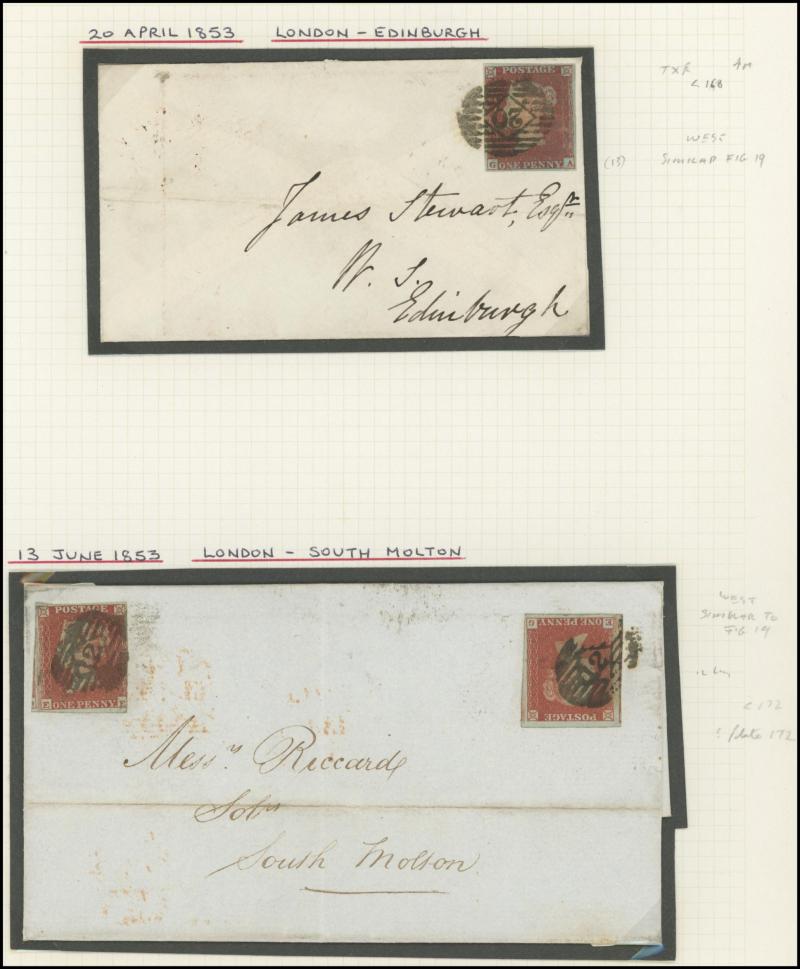 20 APRIL 1853 LONDON – EDINBURGH
POSTAGE
20
G ONE PENNY A
James Stewart, Esqr
W. S.
Edinburgh
TXR
< 168
WEST
(13) SIMILAR FIG 19
13 JUNE 1853 LONDON – SOUTH MOLTON
POSTAGE
12
E ONE PENNY E
G ONE PENNY E
12
POSTAGE
Messrs Riccard
Solrs
South Molton
WEST
SIMILAR TO
FIG 19
< 172
! Plate 172